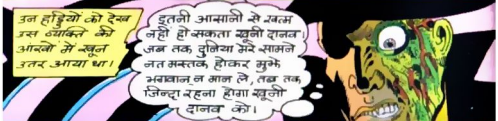 उन हड्डियों को देख
उस व्यक्ति की
आंखों में खून
उतर आया था।
इतनी आसानी से खत्म
नहीं हो सकता खूनी दानव।
जब तक दुनिया मेरे सामने
नत मस्तक होकर मुझे
भगवान् न मान ले, तब तक
जिन्दा रहना होगा खूनी
दानव को।